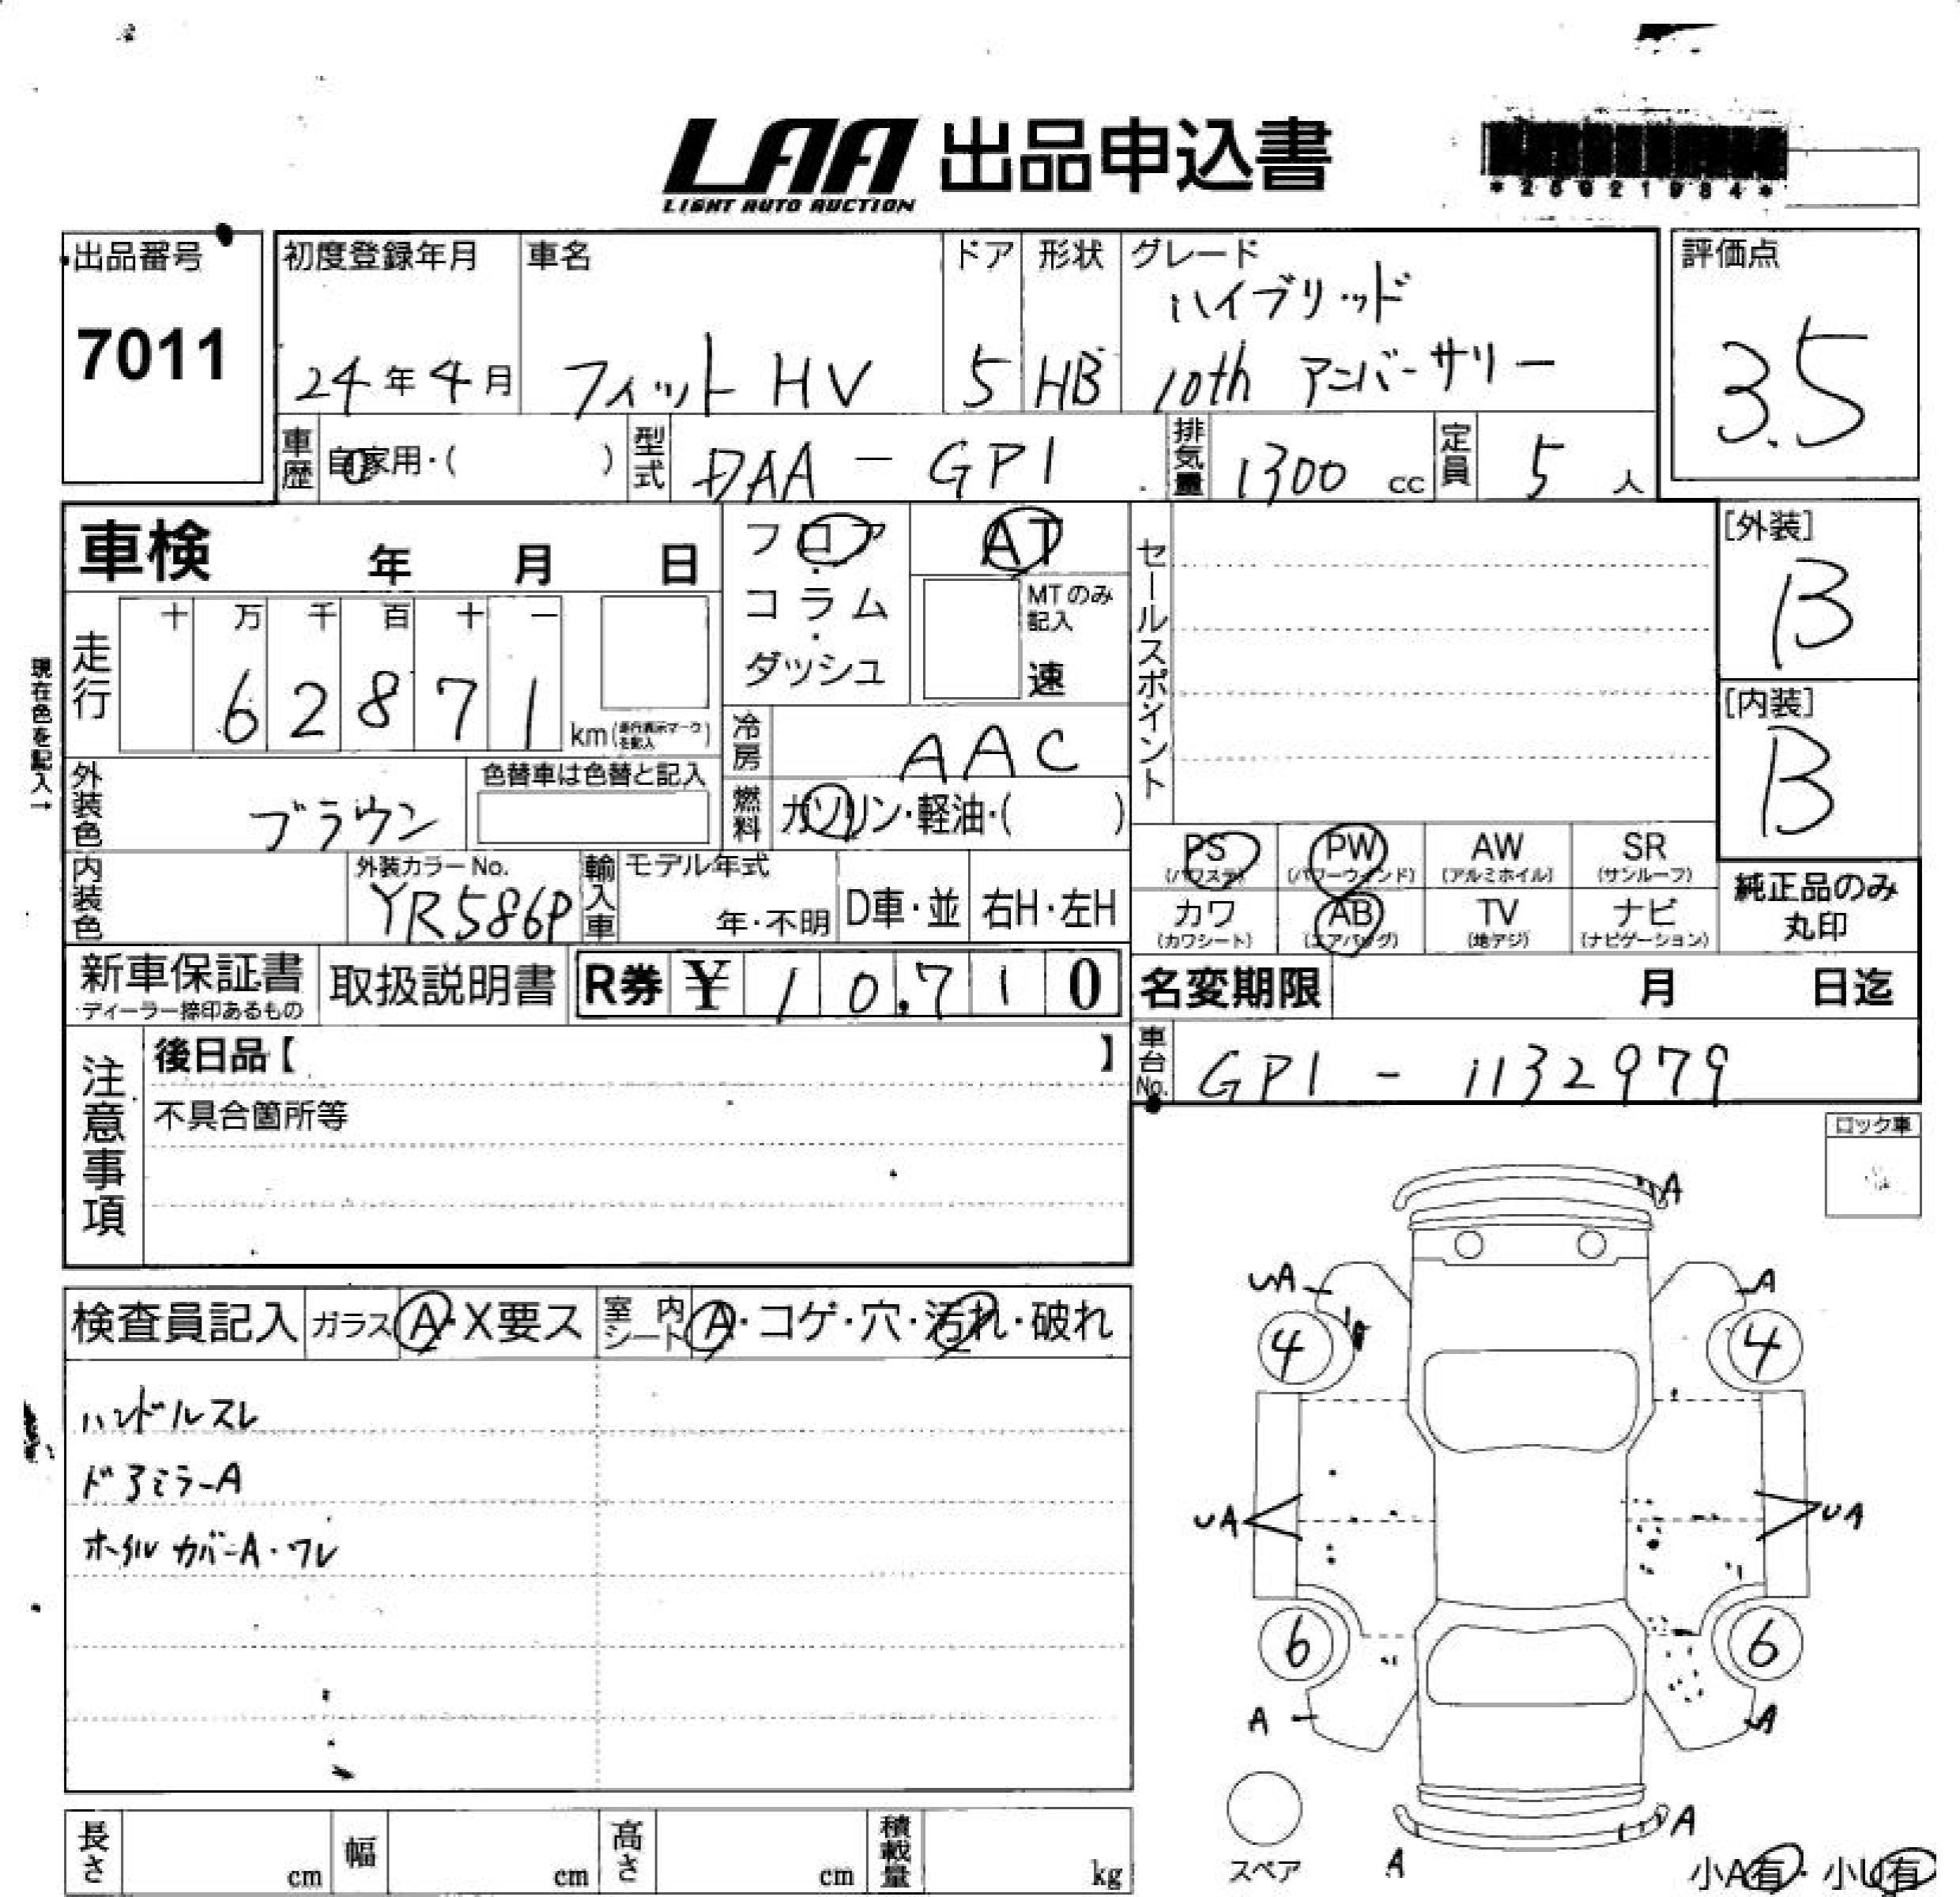 LAA 出品申込書
LIGHT AUTO AUCTION
*26021984*
出品番号
7011
初度登録年月
24年4月
車名
フィット HV
ドア
5
形状
HB
グレード
ハイブリッド
10th アニバーサリー
評価点
3.5
車歴
自家用・( )
型式
DAA - GP1
排気量
1300 cc
定員
5 人
車検 年 月 日
フロア・コラム・ダッシュ
AT
MTのみ記入
速
セールスポイント
[外装]
B
[内装]
B
現在色を記入→
走行
十 万 千 百 十 一
6 2 8 7 1
km(走行表示マークを記入)
冷房
AAC
外装色
ブラウン
色替車は色替と記入
燃料
ガソリン・軽油・( )
内装色
外装カラーNo.
YR586P
輸入車
モデル年式
年・不明
D車・並
右H・左H
PS
(パワステ)
PW
(パワーウインド)
AW
(アルミホイル)
SR
(サンルーフ)
カワ
(カワシート)
AB
(エアバッグ)
TV
(地デジ)
ナビ
(ナビゲーション)
純正品のみ
丸印
新車保証書
ディーラー捺印あるもの
取扱説明書
R券 ¥ 10.710
名変期限 月 日迄
注意事項
後日品【 】
不具合箇所等
車台No.
GP1 - 1132979
ロック車
検査員記入
ガラス A・X要ス
室内シート A・コゲ・穴・汚れ・破れ
ハンドルスレ
ドアミラーA
ホイルカバーA・ワレ
A
UA
A
4
4
UA
UA
6
6
A
A
A
A
スペア
小A有・小U有
長さ cm
幅 cm
高さ cm
積載量 kg